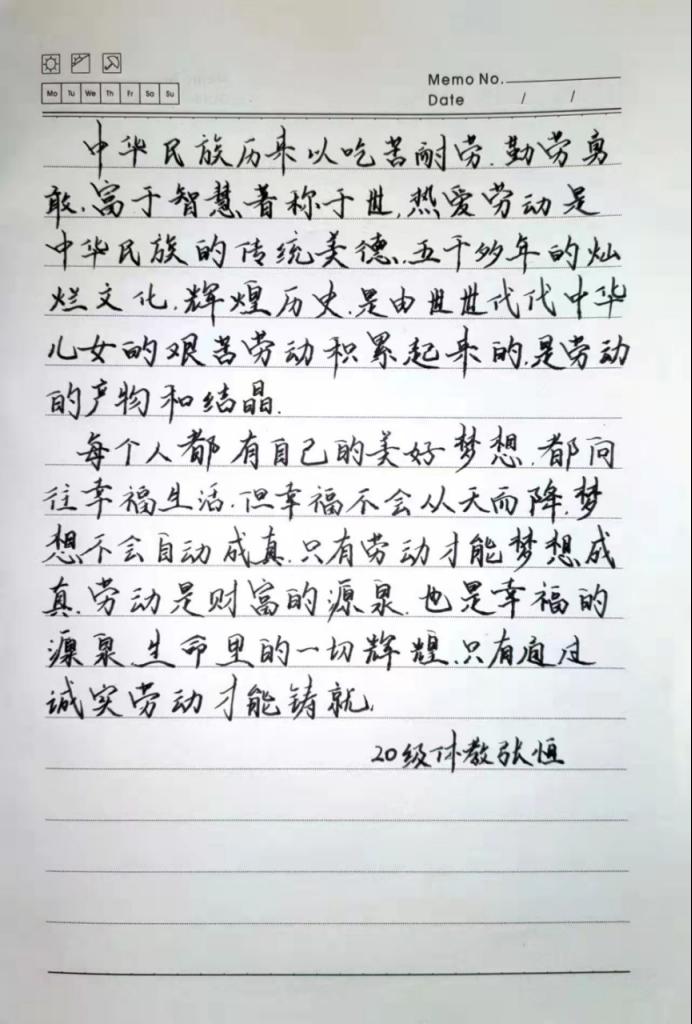 Memo No.
Mo Tu We Th Fr Sa Su
Date / /
中华民族历来以吃苦耐劳.勤劳勇
敢.富于智慧著称于世.热爱劳动是
中华民族的传统美德.五千多年的灿
烂文化.辉煌历史.是由世世代代中华
儿女的艰苦劳动积累起来的.是劳动
的产物和结晶.
每个人都有自己的美好梦想.都向
往幸福生活.但幸福不会从天而降.梦
想不会自动成真.只有劳动才能梦想成
真.劳动是财富的源泉.也是幸福的
源泉.生命里的一切辉煌.只有通过
诚实劳动才能铸就.
20级体教张恒